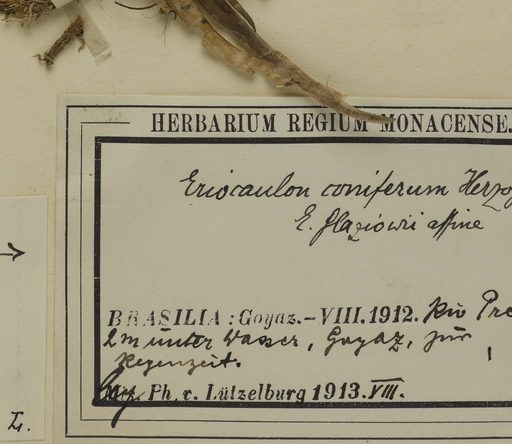 HERBARIUM REGIUM MONACENSE.
Eriocaulon coniferum Herzog
E. Glaziowii affine
BRASILIA: Goyaz.–VIII.1912. Rio Pre
2m unter Wasser, Goyaz, zur
Regenzeit.
Ph. v. Lützelburg 1913.VIII.